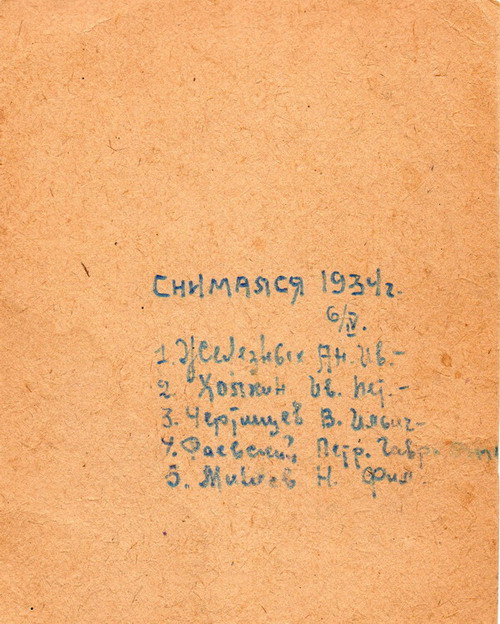 СНИМАЛСЯ 1934 г.
6/IV.
1. Железных Ан. Ив.-
2. Холкин Ив. Пет.-
3. Чертищев В. Ильич-
4. Фаевский Петр.
5. Н. Фил.